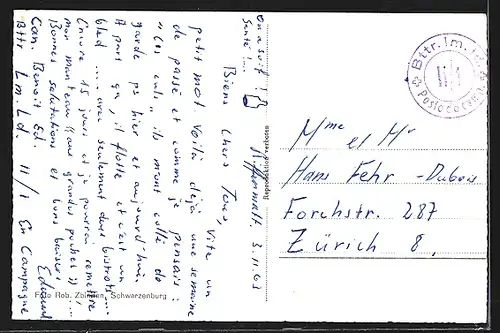 On a soif !
Santé !...
Riffenmatt. 3.11.63
Biens chers Tous, Vite un
petit mot. Voilà déjà une semaine
de passé et comme je pensais :
"Ces culs" ils m'ont collé de
garde hier et aujourd'hui.
A part ça, il flotte et c'est un
bled .... avec seulement deux bistrots...
Encore 15 jours et je pourrai remettre
mon manteau "aux grandes poches"....
Bonnes salutations et bons baisers
Edouard
Can. Benoit Ed.
Bttr L.m.Ld. 11/1 En Campagne
Foto Rob. Zbinden, Schwarzenburg
Reproduktion vorbehalten
Bttr. lm. ld.
Posto de camp.
Mme et Mr
Hans Fehr - Dubois
Forchstr. 287
Zürich 8.